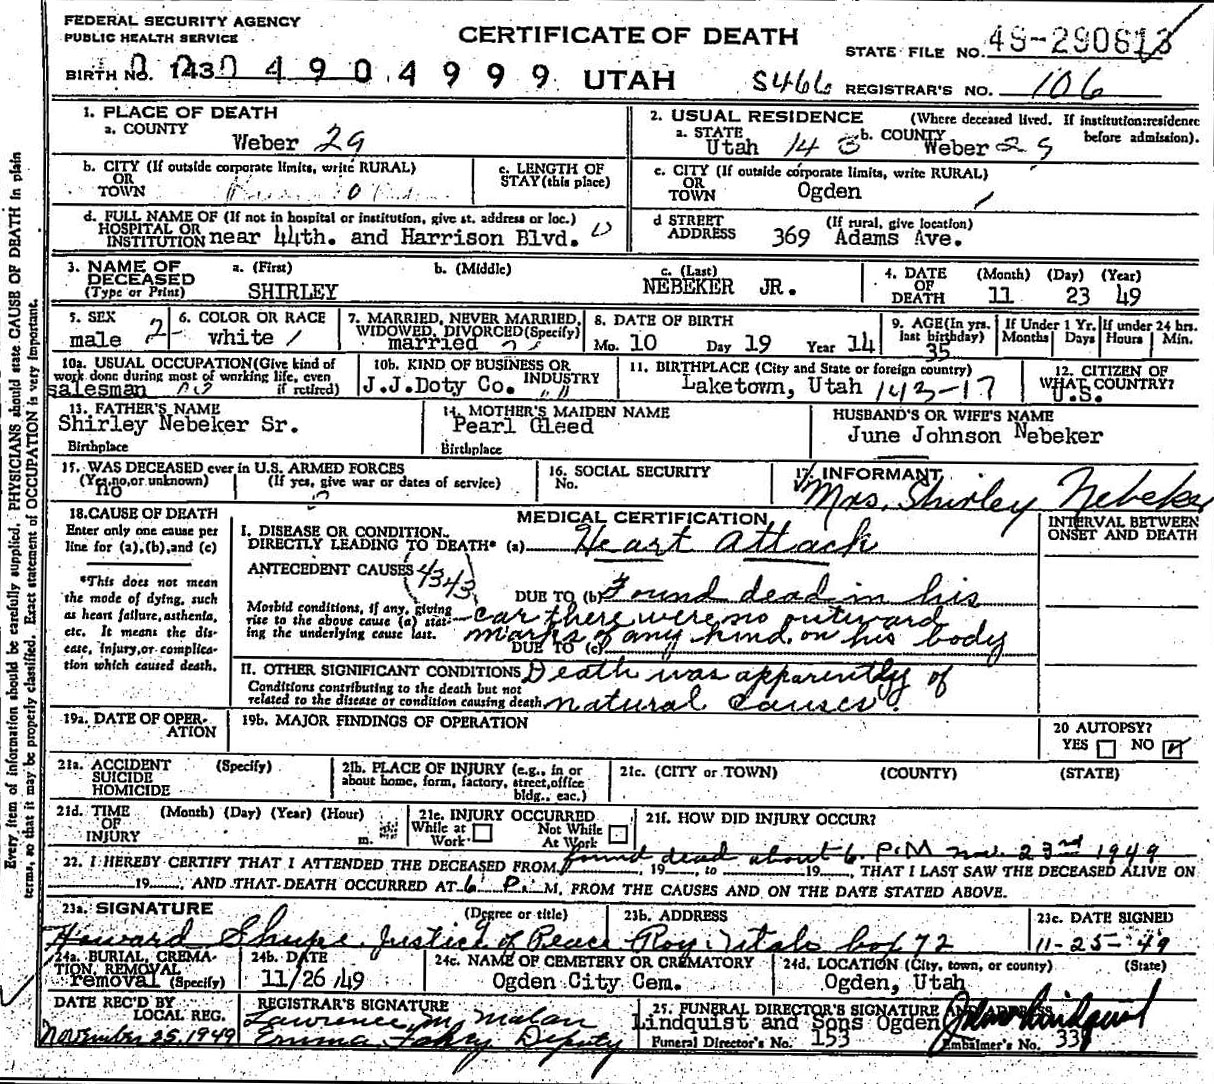 FEDERAL SECURITY AGENCY
PUBLIC HEALTH SERVICE
CERTIFICATE OF DEATH
STATE FILE NO. 49-290613
BIRTH NO. 1430 4 9 0 4 9 9 9 UTAH S466 REGISTRAR'S NO. 106
1. PLACE OF DEATH
a. COUNTY
Weber 29
2. USUAL RESIDENCE (Where deceased lived. If institution:residence before admission).
a. STATE Utah 143 b. COUNTY Weber 29
b. CITY (If outside corporate limits, write RURAL)
OR
TOWN
c. LENGTH OF
STAY (this place)
c. CITY (If outside corporate limits, write RURAL)
OR
TOWN Ogden
d. FULL NAME OF (If not in hospital or institution, give st. address or loc.)
HOSPITAL OR
INSTITUTION near 44th. and Harrison Blvd.
d STREET ADDRESS (If rural, give location)
369 Adams Ave.
3. NAME OF DECEASED
(Type or Print)
a. (First) b. (Middle) c. (Last)
SHIRLEY NEBEKER JR.
4. DATE OF DEATH (Month) (Day) (Year)
11 23 49
5. SEX
male 2
6. COLOR OR RACE
white 1
7. MARRIED, NEVER MARRIED,
WIDOWED, DIVORCED (Specify)
married
8. DATE OF BIRTH
Mo. 10 Day 19 Year 14
9. AGE (In yrs.
last birthday)
35
If Under 1 Yr.
Months Days
If under 24 hrs.
Hours Min.
10a. USUAL OCCUPATION (Give kind of
work done during most of working life, even
if retired)
salesman
10b. KIND OF BUSINESS OR
INDUSTRY
J.J.Doty Co.
11. BIRTHPLACE (City and State or foreign country)
Laketown, Utah 143-17
12. CITIZEN OF
WHAT COUNTRY?
U.S.
13. FATHER'S NAME
Shirley Nebeker Sr.
Birthplace
14. MOTHER'S MAIDEN NAME
Pearl Gleed
Birthplace
HUSBAND'S OR WIFE'S NAME
June Johnson Nebeker
15. WAS DECEASED ever in U.S. ARMED FORCES
(Yes, no, or unknown) (If yes, give war or dates of service)
no
16. SOCIAL SECURITY
No.
17. INFORMANT
Mrs. Shirley Nebeker
18. CAUSE OF DEATH
Enter only one cause per
line for (a), (b), and (c)
*This does not mean
the mode of dying, such
as heart failure, asthenia,
etc. It means the dis-
ease, injury, or complica-
tion which caused death.
MEDICAL CERTIFICATION
INTERVAL BETWEEN
ONSET AND DEATH
I. DISEASE OR CONDITION
DIRECTLY LEADING TO DEATH* (a) Heart Attack
ANTECEDENT CAUSES 4343
DUE TO (b) Found dead in his
Morbid conditions, if any, giving
rise to the above cause (a) stat-
ing the underlying cause last.
car there were no outward
marks of any kind on his body
DUE TO (c)
II. OTHER SIGNIFICANT CONDITIONS Death was apparently of
Conditions contributing to the death but not
related to the disease or condition causing death. natural causes.
19a. DATE OF OPER-
ATION
19b. MAJOR FINDINGS OF OPERATION
20 AUTOPSY?
YES NO
21a. ACCIDENT (Specify)
SUICIDE
HOMICIDE
21b. PLACE OF INJURY (e.g., in or
about home, form, factory, street, office
bldg., eac.)
21c. (CITY or TOWN) (COUNTY) (STATE)
21d. TIME OF INJURY (Month) (Day) (Year) (Hour)
m.
21e. INJURY OCCURRED
While at Work Not While At Work
21f. HOW DID INJURY OCCUR?
22. I HEREBY CERTIFY THAT I ATTENDED THE DECEASED FROM found dead about 6 P.M Nov. 23rd 1949
, 19 , to 19 , THAT I LAST SAW THE DECEASED ALIVE ON
19 , AND THAT DEATH OCCURRED AT 6 P. M, FROM THE CAUSES AND ON THE DATE STATED ABOVE.
23a. SIGNATURE (Degree or title)
Howard Shupe Justice of Peace
23b. ADDRESS
Roy Utah box 72
23c. DATE SIGNED
11-25-49
24a. BURIAL, CREMA-
TION, REMOVAL
removal (Specify)
24b. DATE
11/26/49
24c. NAME OF CEMETERY OR CREMATORY
Ogden City Cem.
24d. LOCATION (City, town, or county) (State)
Ogden, Utah
DATE REC'D BY
LOCAL REG.
November 25, 1949
REGISTRAR'S SIGNATURE
Lawrence M. Malan
Emma Fahry Deputy
25. FUNERAL DIRECTOR'S SIGNATURE AND ADDRESS
Lindquist and Sons Ogden
Funeral Director's No. 153
Embalmer's No. 33
Every item of information should be carefully supplied. PHYSICIANS should state CAUSE OF DEATH in plain
terms, so that it may be properly classified. Exact statement of OCCUPATION is very important.